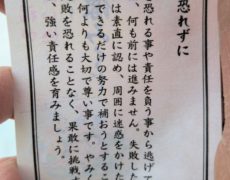 恐れずに
恐れる事や責任を負う事から逃げて
、何も前には進みません。失敗した
は素直に認め、周囲に迷惑をかけた
できるだけの努力で補おうとするこ
何よりも大切で尊い事です。やみく
敗を恐れることなく、果敢に挑戦す
、強い責任感を育みましょう。